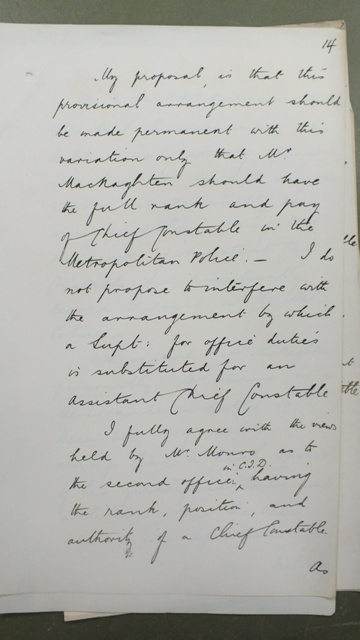 14
My proposal, is that this
provisional arrangement should
be made permanent with this
variation only that Mr
MacNaghten should have
the full rank and pay
of Chief Constable in the
Metropolitan Police. — I do
not propose to interfere with
the arrangement by which
a Supt: for office duties
is substituted for an
Assistant Chief Constable
I fully agree with the views
held by Mr. Monro as to
the second officer in C.I.D. having
the rank, position, and
authority of a Chief Constable.
As